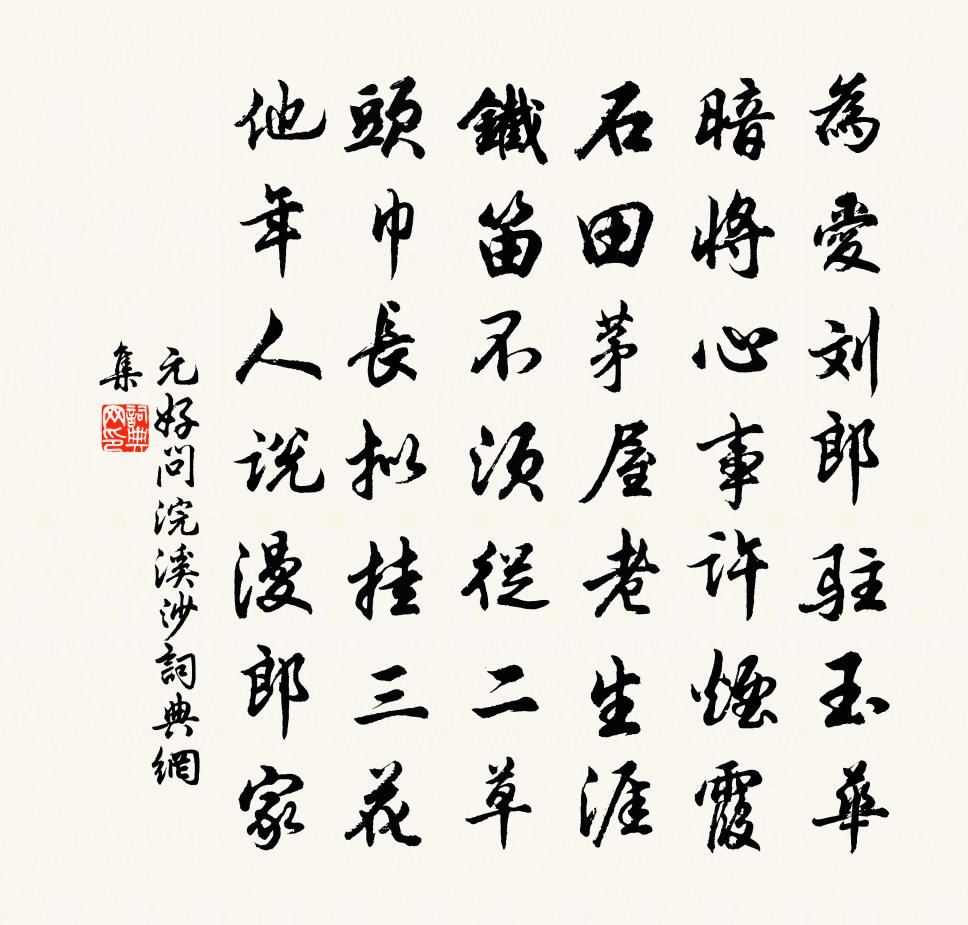 為愛刘郎駐玉華
暗將心事許煙霞
石田茅屋老生涯
鐵笛不須從二草
頭巾長拟挂三花
他年人説漫郎家
元好問浣溪沙詞典網
集
詞典网印